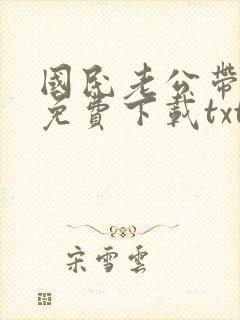 國民老公帶
免費下載txt
宋雪雲